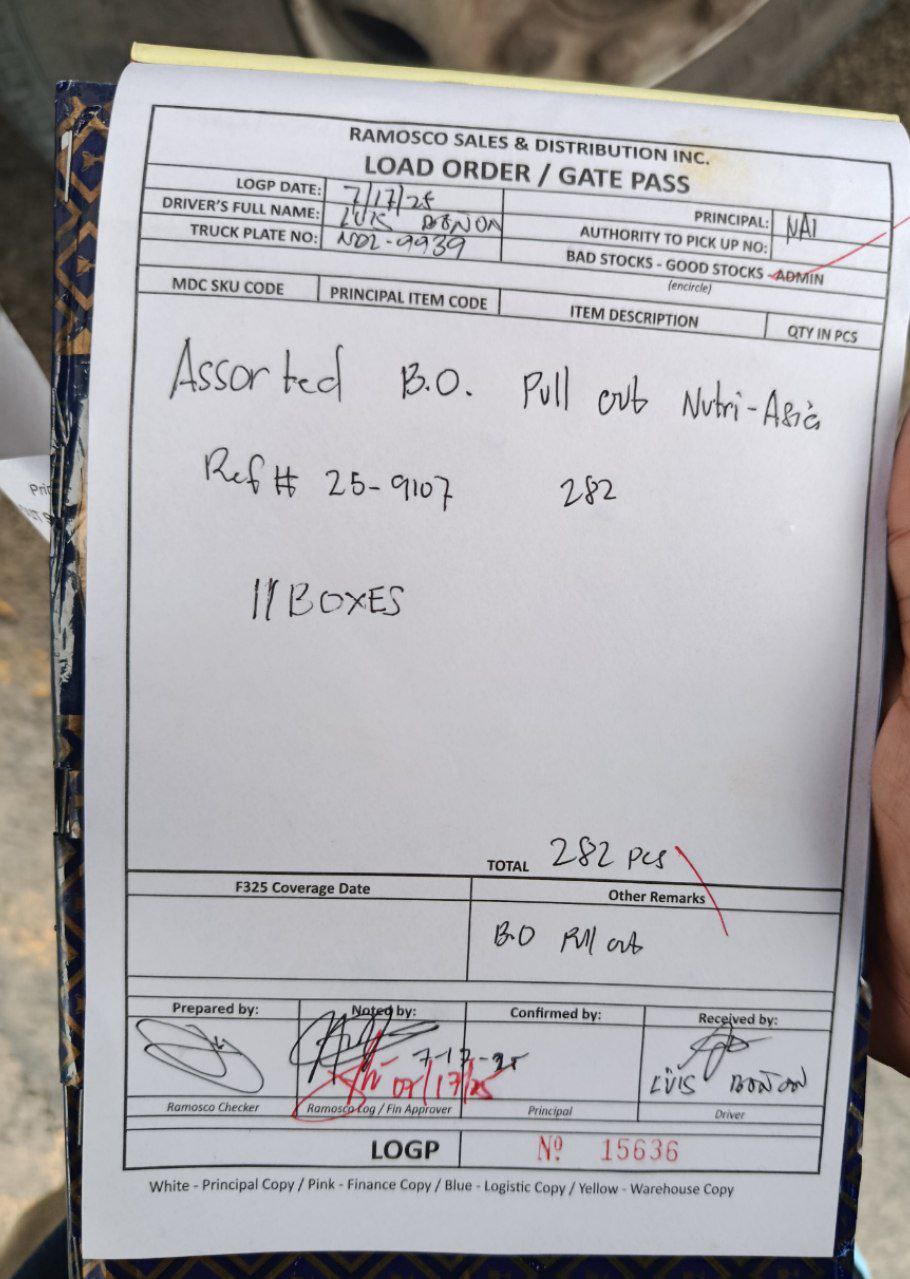 RAMOSCO SALES & DISTRIBUTION INC.
LOAD ORDER / GATE PASS
LOGP DATE: 7/17/25
DRIVER'S FULL NAME: LUIS BONON
TRUCK PLATE NO: NDL-9939
PRINCIPAL: NAI
AUTHORITY TO PICK UP NO:
BAD STOCKS - GOOD STOCKS - ADMIN
(encircle)
MDC SKU CODE PRINCIPAL ITEM CODE ITEM DESCRIPTION QTY IN PCS
Assorted B.O. Pull out Nutri-Asia
Ref # 25-9107 282
11 BOXES
TOTAL 282 pcs
F325 Coverage Date Other Remarks
B.O Pull out
Prepared by: Noted by: Confirmed by: Received by:
7-17-25
07/17/25
LUIS BONON
Ramosco Checker Ramosco Log / Fin Approver Principal Driver
LOGP Nº 15636
White - Principal Copy / Pink - Finance Copy / Blue - Logistic Copy / Yellow - Warehouse Copy